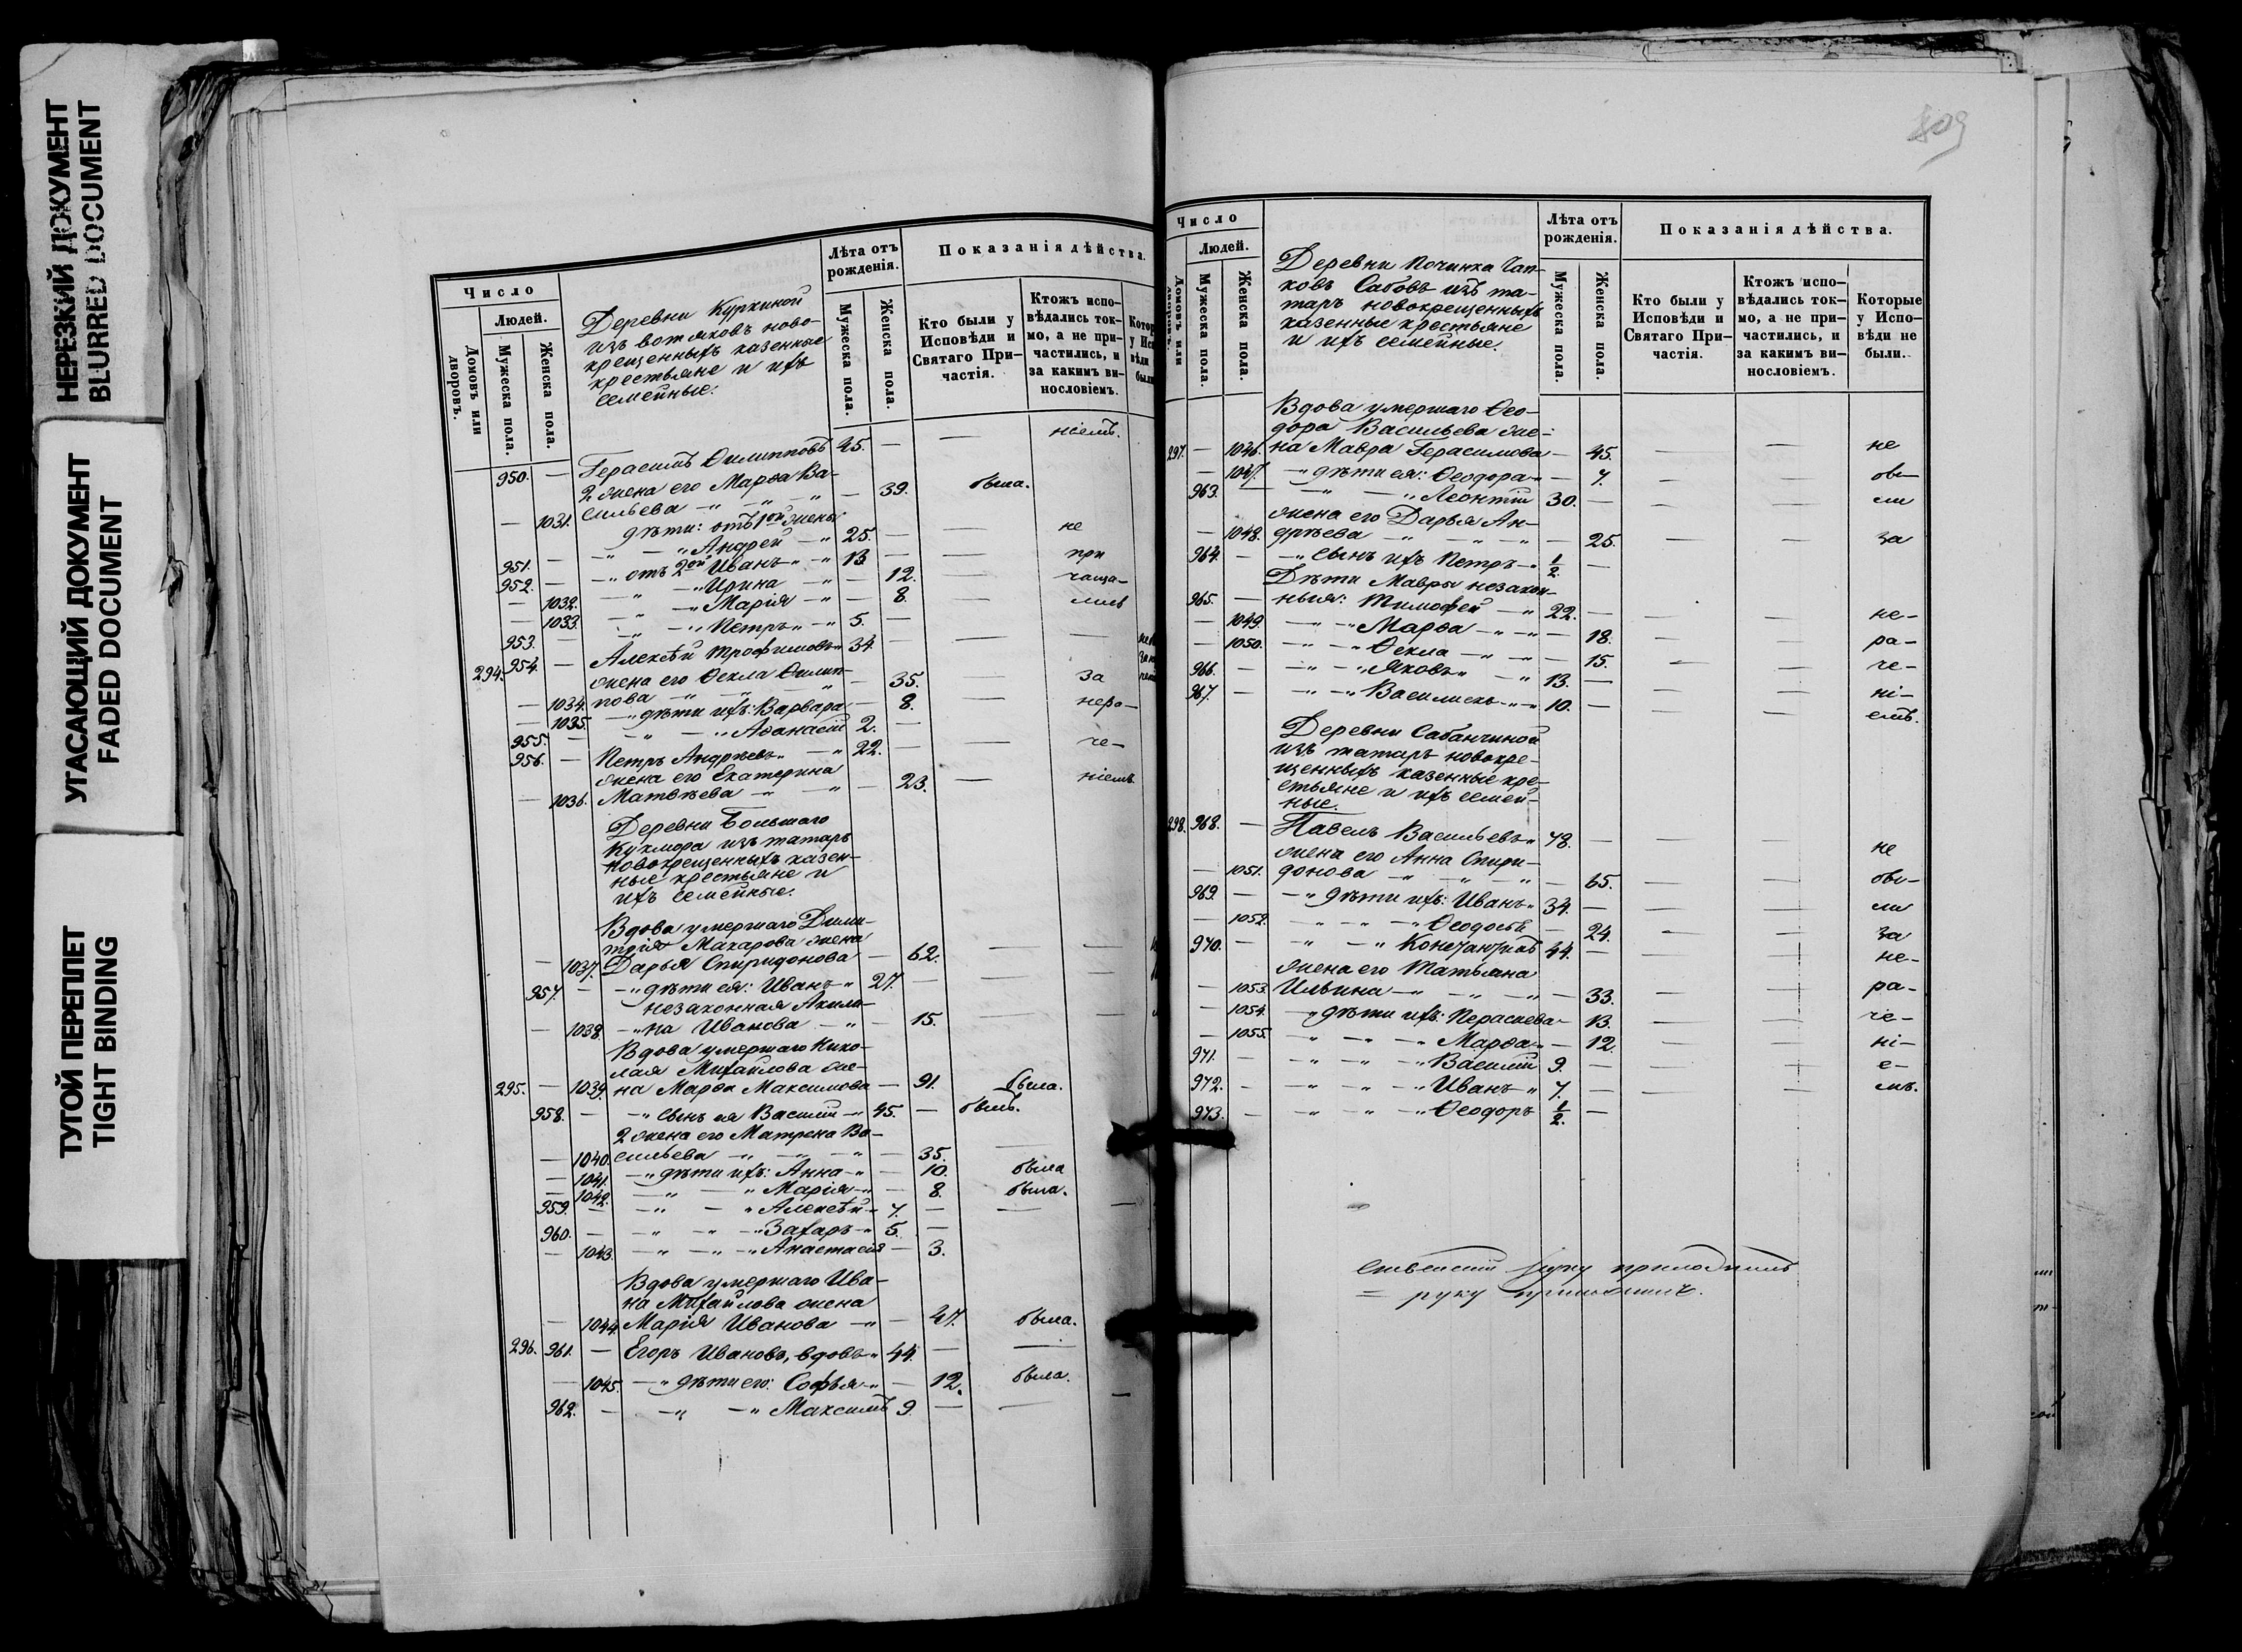 НЕРЕЗКИЙ ДОКУМЕНТ
BLURRED DOCUMENT
УГАСАЮЩИЙ ДОКУМЕНТ
FADED DOCUMENT
ТУГОЙ ПЕРЕПЛЕТ
TIGHT BINDING
Число
Людей.
Домовъ или дворовъ.
Мужеска пола.
Женска пола.
Деревни Куркиной
изъ вотяковъ ново-
крещенныхъ казенные
крестьяне и ихъ
семейные.
Лѣта отъ рожденія.
Мужеска пола.
Женска пола.
Показанія дѣйства.
Кто были у Исповѣди и Святаго При-частія.
Ктожъ испо-вѣдались ток-мо, а не при-частились, и за какимъ ви-нословіемъ.
950. — Герасимъ Филипповъ 45. — — ніемъ.
2 жена его Марѳа Ва-
— 1031. сильева — 39. была.
дѣти: отъ 1ой жены
951. — Андрей 25. — — не
952. — отъ 2ой Иванъ 13. — — при
— 1032. Ирина — 12. — чаща-
— 1033. Марія — 8. — лись
953. — Петръ 5. —
294. 954. — Алексѣй Трофимовъ 34. — — —
жена его Ѳекла Филип-
— 1034. пова — 35. — за
— 1035. дѣти ихъ: Варвара — 8. нера-
955. — Аѳанасій 2. —
956. — Петръ Андреевъ 22. — — че-
жена его Екатерина
— 1036. Матвѣева — 23. — ніемъ
Деревни Большаго
Кукмора изъ татаръ
новокрещенныхъ казен-
ные крестьяне и
ихъ семейные.
Вдова умершаго Дими-
трія Макарова жена
— 1037. Дарья Спиридонова — 62. — —
957. — дѣти ея: Иванъ 27. — — —
незаконная Акили-
— 1038. на Иванова — 15. — —
Вдова умершаго Нико-
лая Михайлова же-
295. — 1039. на Марѳа Максимова — 91. была.
958. — сынъ ея Василій 45. — былъ.
2 жена его Матрена Ва-
— 1040. сильева — 35. —
— 1041. дѣти ихъ: Анна — 10. была
— 1042. Марія — 8. была.
959. — Алексѣй 7. — — —
960. — Захаръ 5. —
— 1043. Анастасія — 3.
Вдова умершаго Ива-
на Михайлова жена
— 1044. Марія Иванова — 47. была.
296. 961. — Егоръ Ивановъ, вдовъ 44. — —
— 1045. дѣти его: Софья — 12. была.
962. — Максимъ 9. — —
409
Число
Людей.
Домовъ или дворовъ.
Мужеска пола.
Женска пола.
Деревни Починка Чап-
ковъ Сабовъ изъ та-
таръ новокрещенныхъ
казенные крестьяне
и ихъ семейные.
Лѣта отъ рожденія.
Мужеска пола.
Женска пола.
Показанія дѣйства.
Кто были у Исповѣди и Святаго При-частія.
Ктожъ испо-вѣдались ток-мо, а не при-частились, и за какимъ ви-нословіемъ.
Которые у Испо-вѣди не были.
Вдова умершаго Ѳео-
дора Васильева же-
297. — 1046. на Мавра Герасимова — 45. — — не
— 1047. дѣти ея: Ѳеодора — 7. — — бы-
963. — Леонтій 30. — — — ли
жена его Дарья Ан-
— 1048. дрѣева — 25. — — за
964. — сынъ ихъ Петръ 1/2. —
Дѣти Мавры незакон-
965. — ныя: Тимофей 22. — — — не-
— 1049. Марѳа — 18. — — ра-
— 1050. Ѳекла — 15. — — че-
966. — Яковъ 13. — — — ні-
967. — Василискъ 10. — — — емъ.
Деревни Сабанчиной
изъ татаръ новокре-
щенныхъ казенные кре-
стьяне и ихъ семей-
ные.
298. 968. — Павелъ Васильевъ 78. — — — не
жена его Анна Спири-
— 1051. донова — 65. — — бы-
969. — дѣти ихъ: Иванъ 34. — — — ли
— 1052. Ѳеодосья — 24. — — за
970. — Константинъ 44. — — — не-
жена его Татьяна
— 1053. Ильина — 33. — — ра-
— 1054. дѣти ихъ: Параскева — 13. — — че-
— 1055. Марѳа — 12. — — ні-
971. — Василій 9. — — — е-
972. — Иванъ 7. — — — мъ.
973. — Ѳеодоръ 1/2. —
руку приложилъ
руку приложилъ.